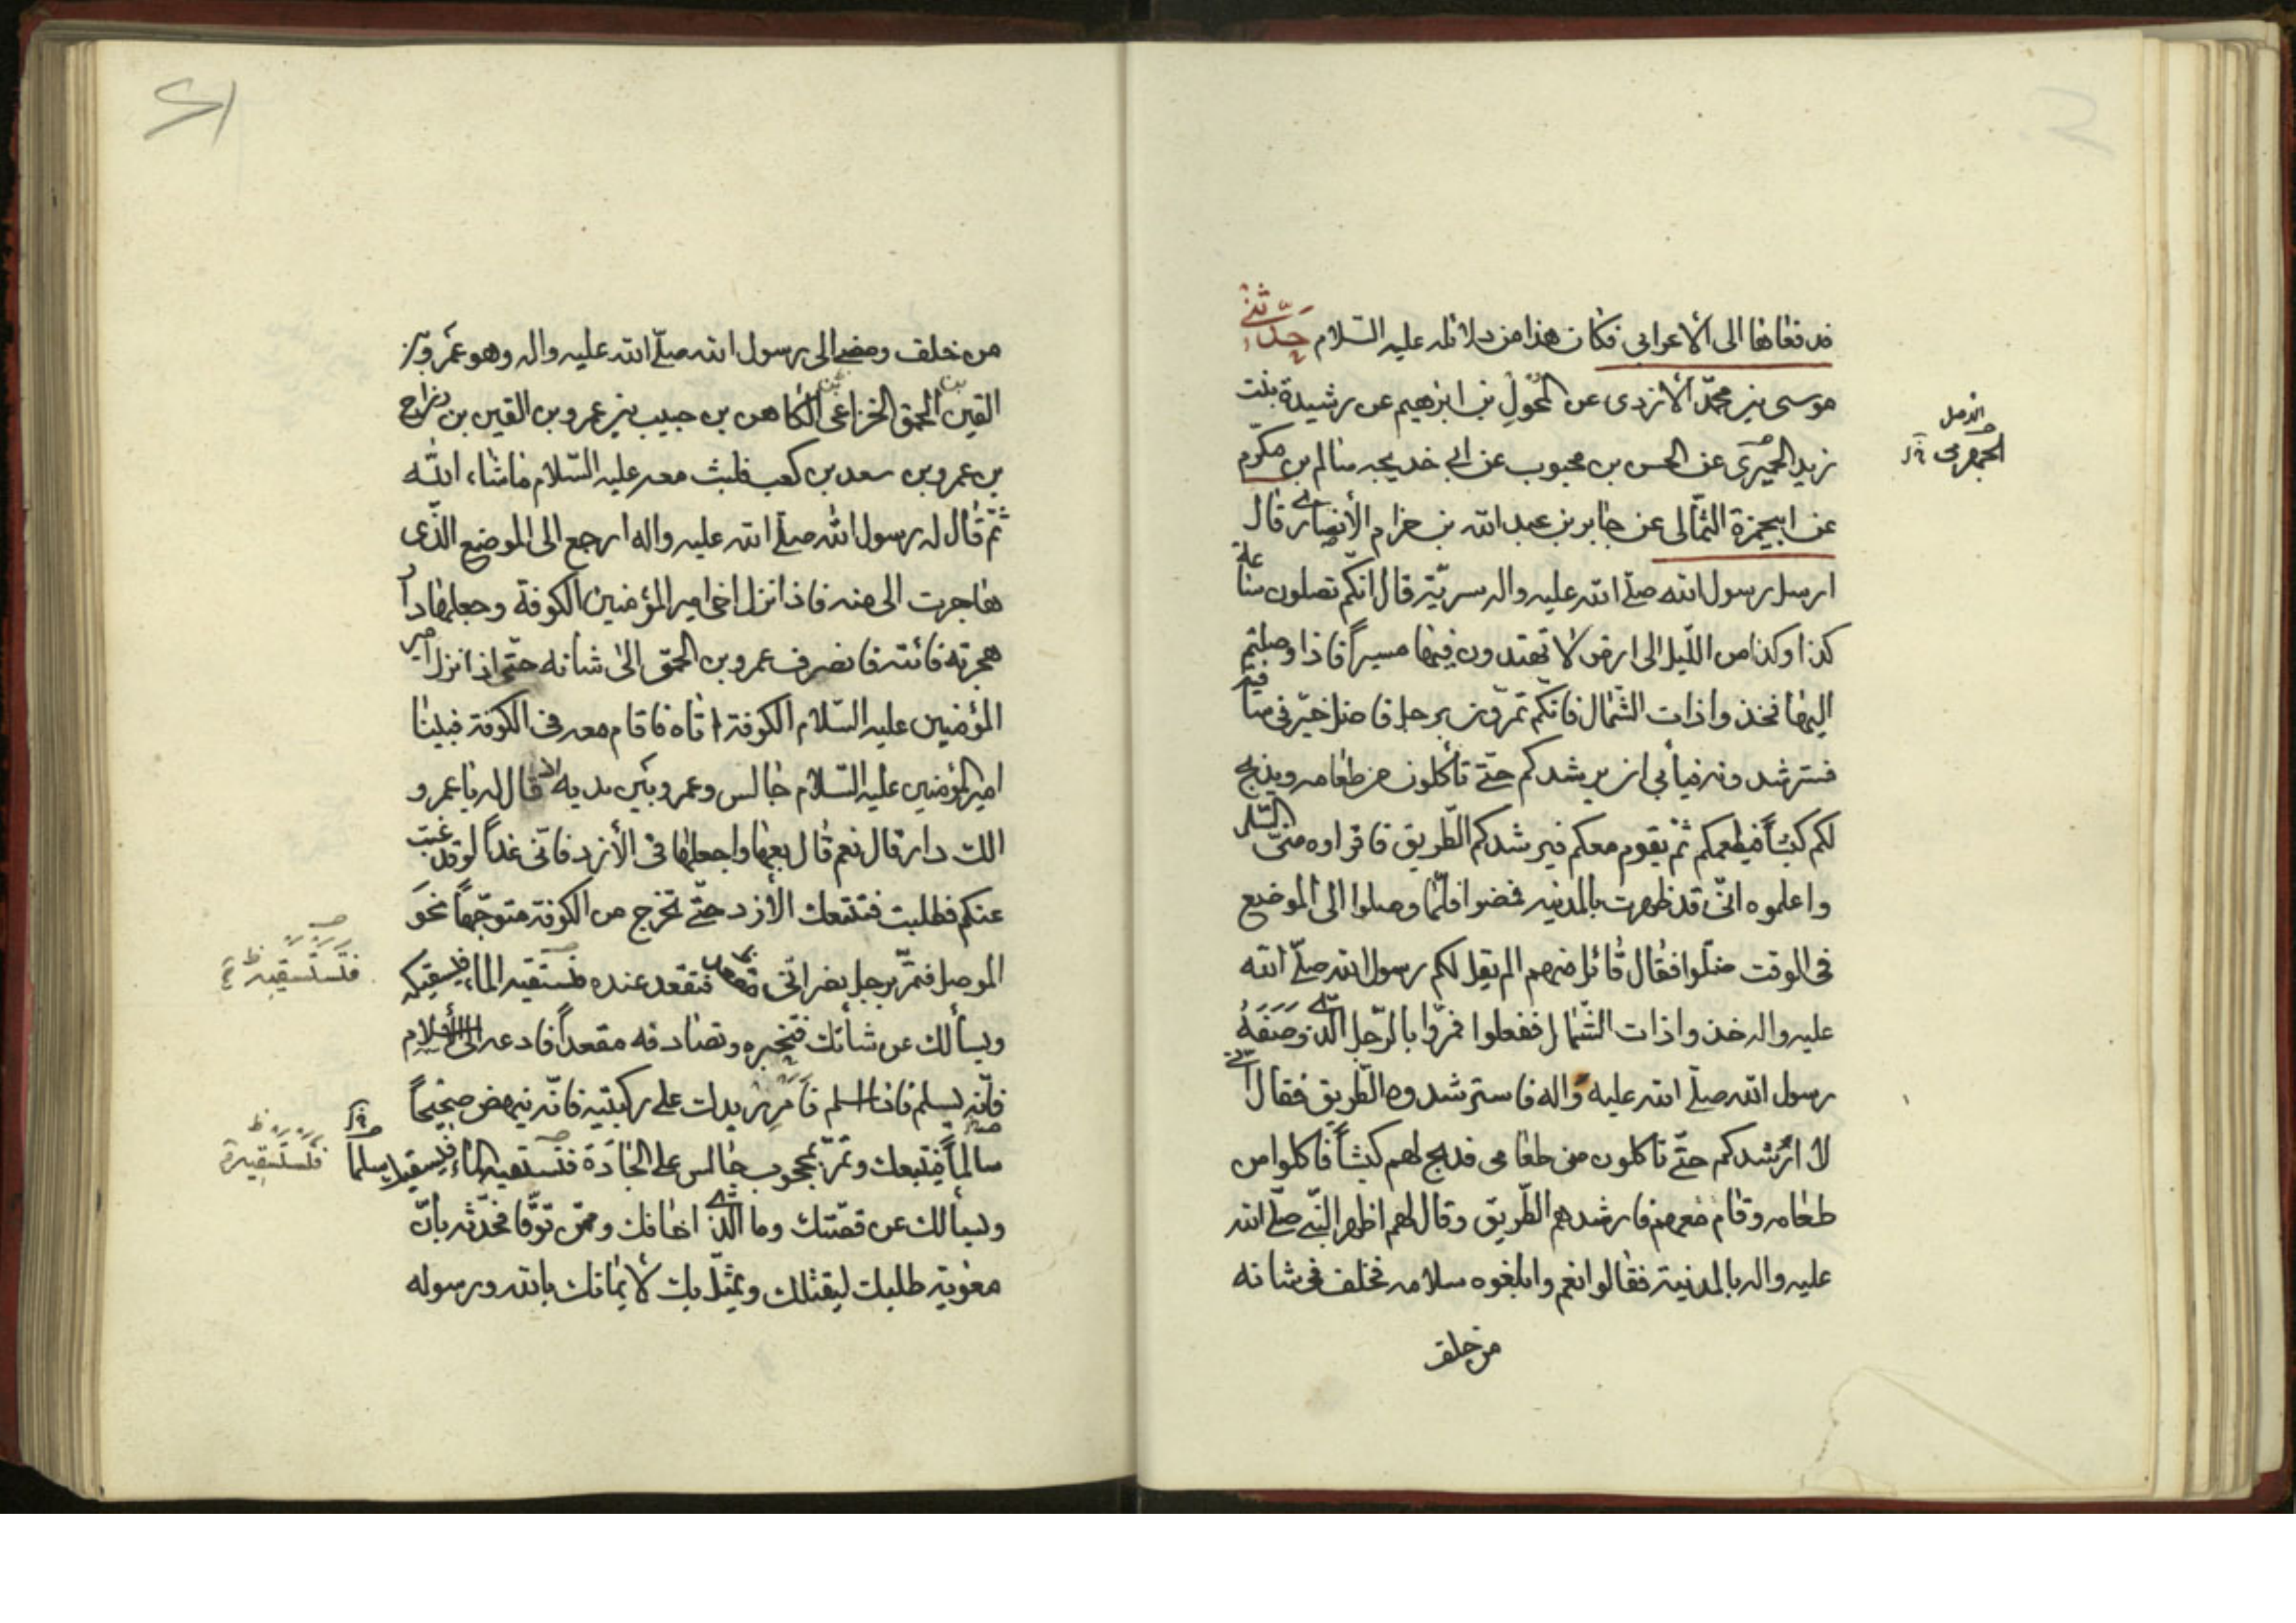 فدفعاها الى الأعرابى فكان هذا من دلائله عليه السّلام حدّثنى
موسى بن محمّد الأزدى عن المخول بن ابرهيم عن رشيدة بنت
زيد الحميرى عن الحسن بن محبوب عن ابى خديجه سالم بن مكرّم
عن ابيحمزة الثّمالى عن جابر بن عبد الله بن حزام الأنصارى قال
ارسل رسول الله صلّى الله عليه واله سريّة قال انّكم تصلون ساعة
كذا وكذا من اللّيل الى ارض لا تهتدون فيها مسيراً فاذا وصلتم
اليها فخذوا ذات الشّمال فانّكم تمرّون برجل فاضل خيّر فى شاته
فسترشدونه فيأبى ان يرشدكم حتّى تأكلون من طعامه ويذبح
لكم كبشاً فيطعمكم ثمّ يقوم معكم فيرشدكم الطّريق فاقراوه منّى السّلام
واعلموه انّى قد ظهرت بالمدنيه فمضوا فلمّا وصلوا الى الموضع
فى الوقت ضلّوا فقال قائل منهم الم يقل لكم رسول الله صلّى الله
عليه واله خذوا ذات الشّمال ففعلوا فمرّوا بالرّجل الّذى وصفه
رسول الله صلّى الله عليه واله فاسترشدوه الطّريق فقال انّى
لا ارشدكم حتّى تاكلون من طعامى فذبح لهم كبشاً فاكلوا من
طعامه وقام معهم فارشدهم الطّريق وقال لهم اظهر النّبى صلّى الله
عليه واله بالمدنية فقالوا نعم وابلغوه سلامه فخلف فى شانه
من خلف
من خلف ومضى الى رسول الله صلّى الله عليه واله وهو عمرو بن
الحمق الخزاعى بن الكاهن بن حبيب بن عمرو بن القين بن دراج
بن عمرو بن سعد بن كعب فلبث معه عليه السّلام ماشاء الله
ثمّ قال له رسول الله صلّى الله عليه واله ارجع الى الموضع الّذى
هاجرت الى منه فاذا نزل اخى امير المؤمنين الكوفة وجعلها دار
هجرته فائته فانصرف عمرو بن الحمق الى شانه حتّى اذا نزل امير
المؤمنين عليه السّلام الكوفة اتاه فاقام معه فى الكوفة فبينا
امير المؤمنين عليه السّلام جالس وعمرو بين يديه قال له يا عمرو
الك دار قال نعم قال بعها واجعلها فى الأزد فانّى غداً لو قد غبت
عنكم فطلبت فتتبعك الأزد حتّى تخرج من الكوفة متوجّهاً نحو
الموصل فتمرّ برجل نصرانّى فتقعد عنده فتستقيه الماء فيسقيكه
ويسألك عن شأنك فتخبره وتصادفه مقعداً فادعه الى الأسلام
فانّه يسلم فاذا اسلم فأمرر يدك على ركبتيه فانّه ينهض صحيحاً
سالماً فيتبعك وتمرّ بمحجوب جالس على الجادّة فتستقيه الماء فيسقيك
ويسألك عن قصّتك وما الّذى اخافك وممّن توقّا فحدّثه بانّ
معوية طلبك ليقتلك ويمثّل بك لأيمانك بالله ورسوله